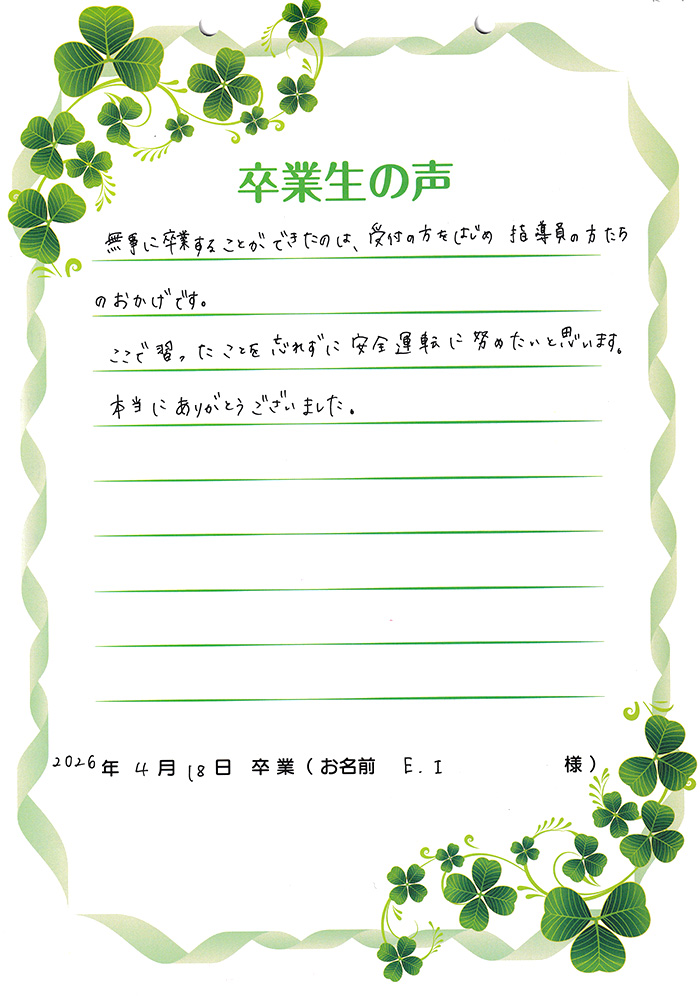 卒業生の声
無事に卒業することができたのは、受付の方をはじめ 指導員の方たち
のおかげです。
ここで習ったことを忘れずに安全運転に努めたいと思います。
本当にありがとうございました。
2026年 4月 18日 卒業(お名前 E.I 様)